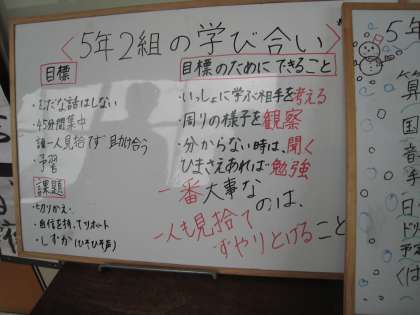 〈5年2組の学び合い〉
目標
・むだな話はしない
・45分間集中
・誰一人見捨てず助け合う
・予習
課題
・切りかえ。
・自信を持ってリポート
・しずか(ひそひそ声)
目標のためにできること
・いっしょに学ぶ相手を考える
・周りの様子を観察
・分からない時は、聞く
ひまさえあれば勉強
一番大事な
のは、
一人も見捨て
ずやりとげること
5年
算
国
音
手
日
ドリ
予定
くば